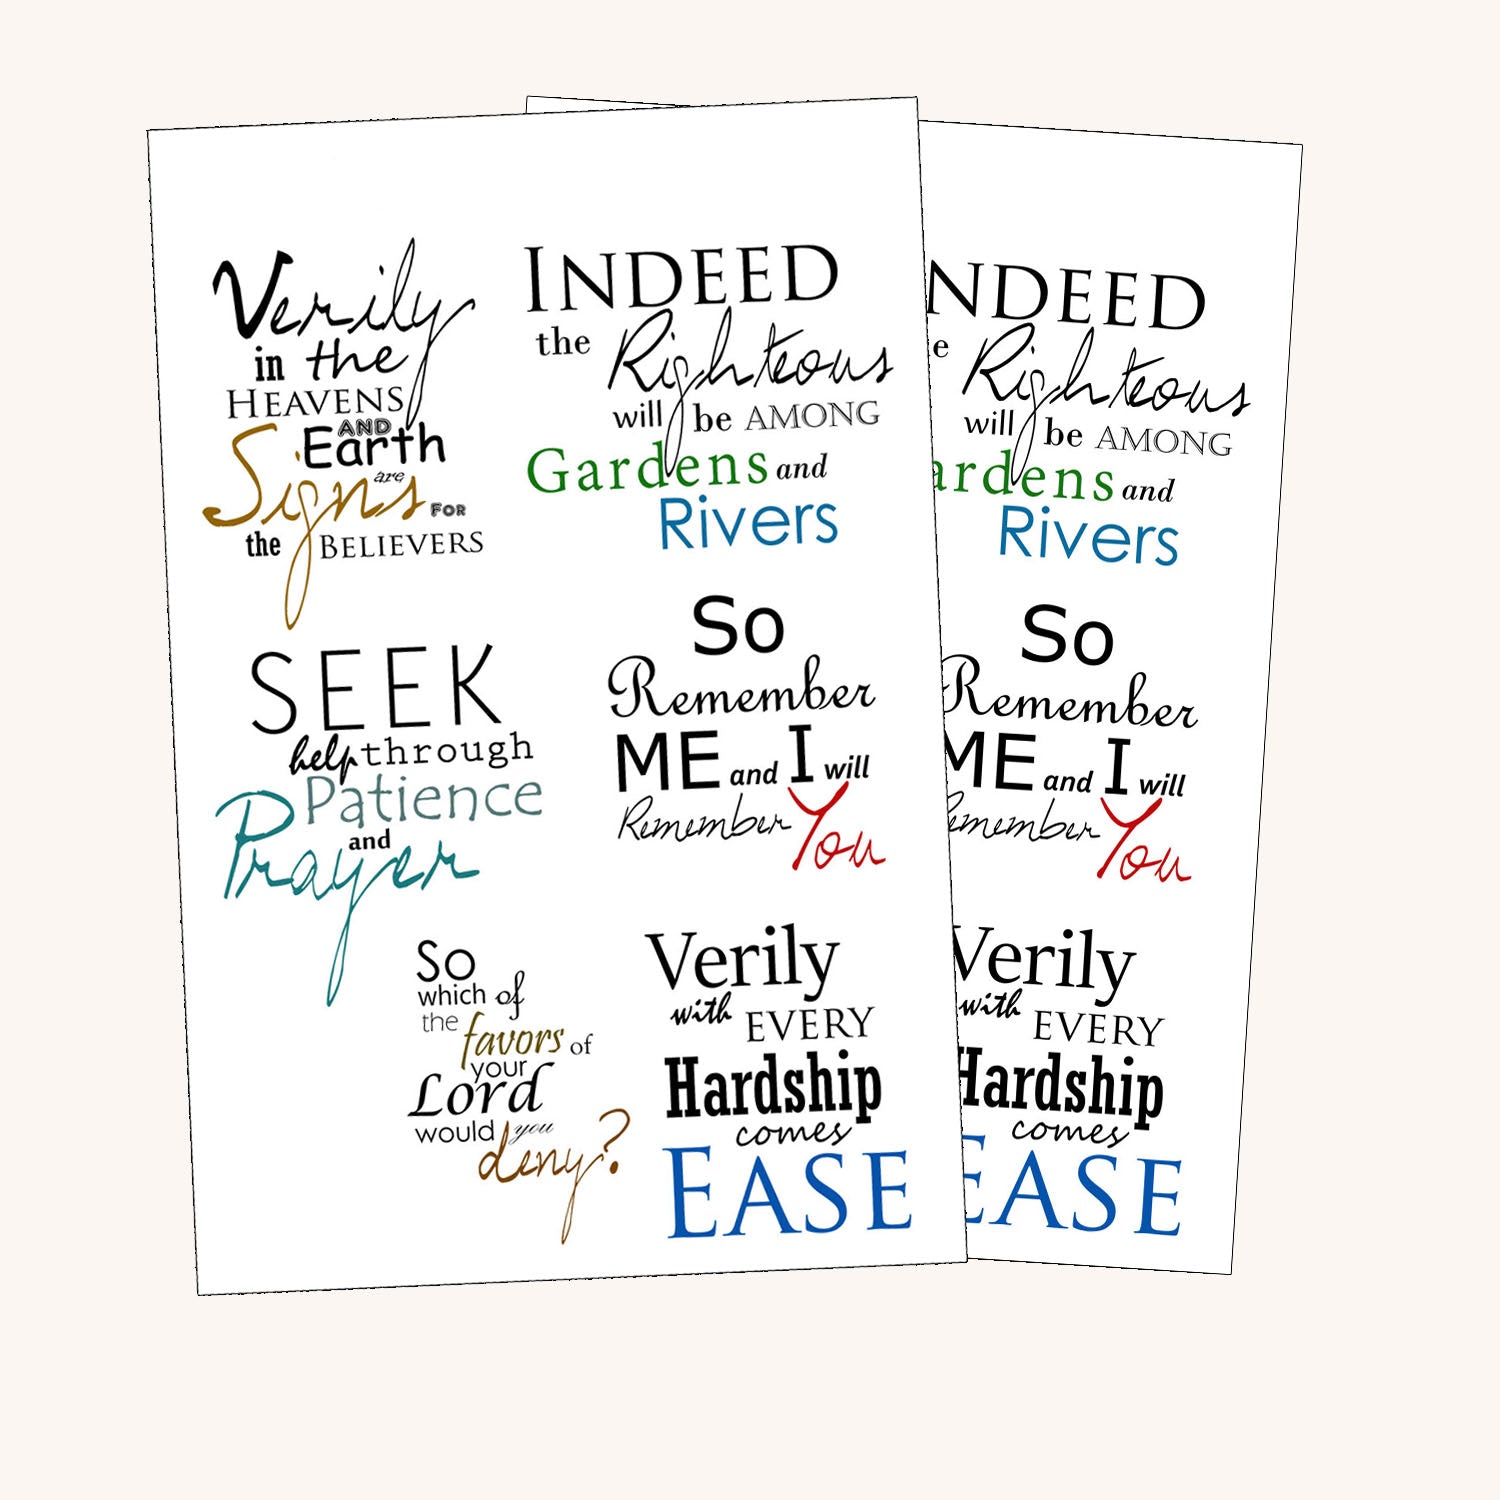 Verily
in the
HEAVENS
AND
Earth
are
Signs FOR
the BELIEVERS
INDEED
the Righteous
will be AMONG
Gardens and
Rivers
SEEK
help through
Patience
and
Prayer
So
Remember
ME and I will
Remember You
So
which of
the favors of
your
Lord
would you
deny?
Verily
with EVERY
Hardship
comes
EASE
NDEED
e Righteous
will be AMONG
ardens and
Rivers
So
Remember
ME and I will
emember You
Verily
with EVERY
Hardship
comes
EASE